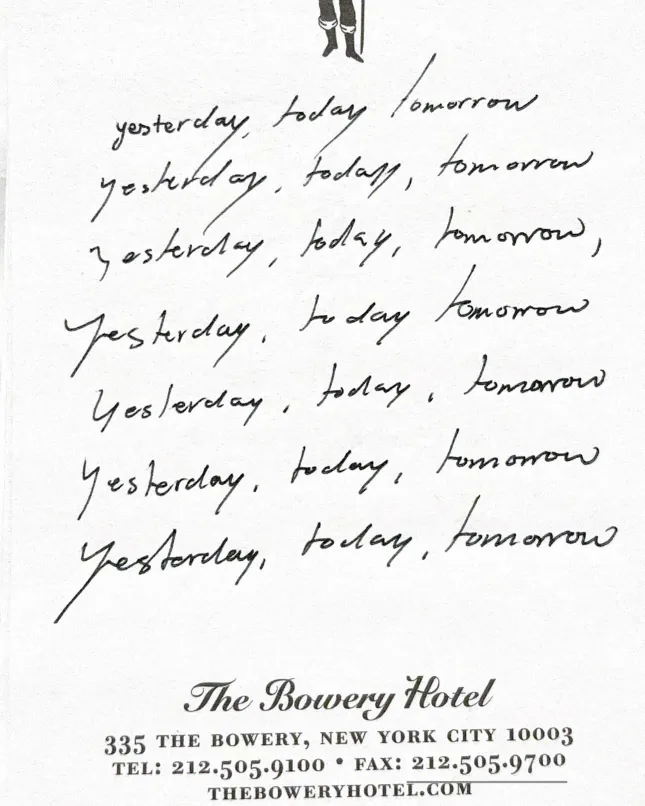 yesterday, today tomorrow
yesterday, today, tomorrow
yesterday, today, tomorrow,
Yesterday, today tomorrow
Yesterday, today, tomorrow
Yesterday, today, tomorrow
Yesterday, today, tomorrow
The Bowery Hotel
335 THE BOWERY, NEW YORK CITY 10003
TEL: 212.505.9100 • FAX: 212.505.9700
THEBOWERYHOTEL.COM